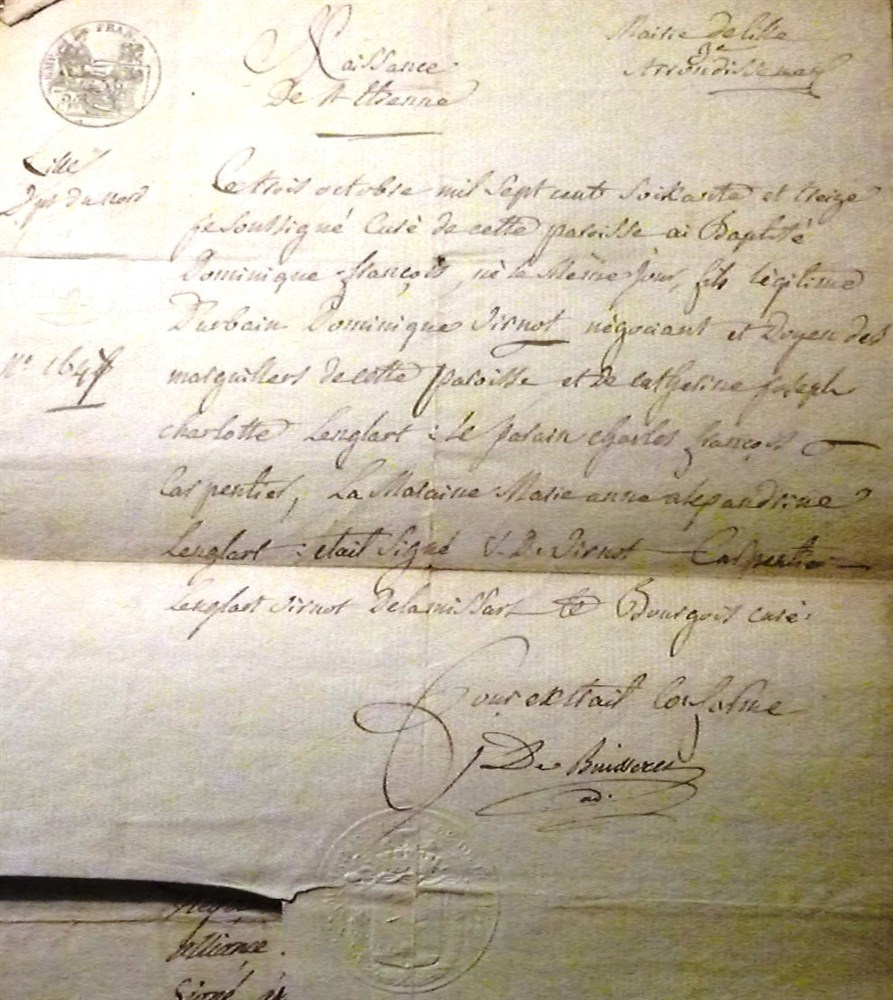 EMPIRE FRAN
Naissance
De St Etienne
Mairie de lille
3e
Arrondissement
Lille
Dpt du nord
Ce trois octobre mil Sept cent Soixante et treize
je Soussigné Curé de cette paroisse ai Baptisé
Dominique françois, né le Même Jour, fils légitime
D'urbain Dominique Virnot négociant et Doyen des
marguillers de cette paroisse et de catherine joseph
charlotte Lenglart : Le parain charles françois
Carpentier, La Maraine Marie anne alexandrine
Lenglart : était Signé U. D. Virnot Carpentier
Lenglart virnot Bourgois curé.
Nº 164
Pour extrait Conforme
De Buisseret
ad.
alliance.
Signé